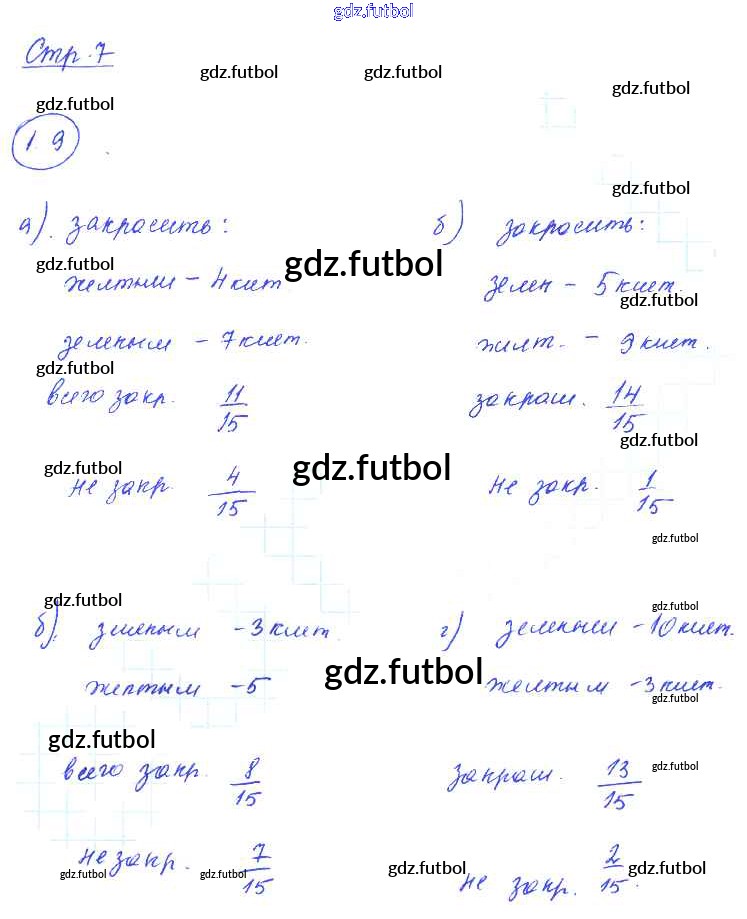 gdz.futbol
Стр. 7
gdz.futbol gdz.futbol
gdz.futbol
gdz.futbol
19
gdz.futbol
а). закрасить:
б) закрасить:
gdz.futbol
gdz.futbol
желтыми - 4 клет
зелен - 5 клет.
gdz.futbol
зеленым - 7 клет.
жилт. - 9 клет.
gdz.futbol
всего закр. 11/15
закраш. 14/15
gdz.futbol
gdz.futbol
gdz.futbol
не закр. 4/15
не закр. 1/15
gdz.futbol
gdz.futbol
gdz.futbol
б). зеленым - 3 клет.
г) зеленым - 10 клет.
gdz.futbol
желтым - 5
желтым - 3 клет.
gdz.futbol
gdz.futbol
всего закр. 8/15
gdz.futbol
закраш. 13/15
не закр. 7/15
gdz.futbol gdz.futbol gdz.futbol gdz.futbol
не закр. 2/15.